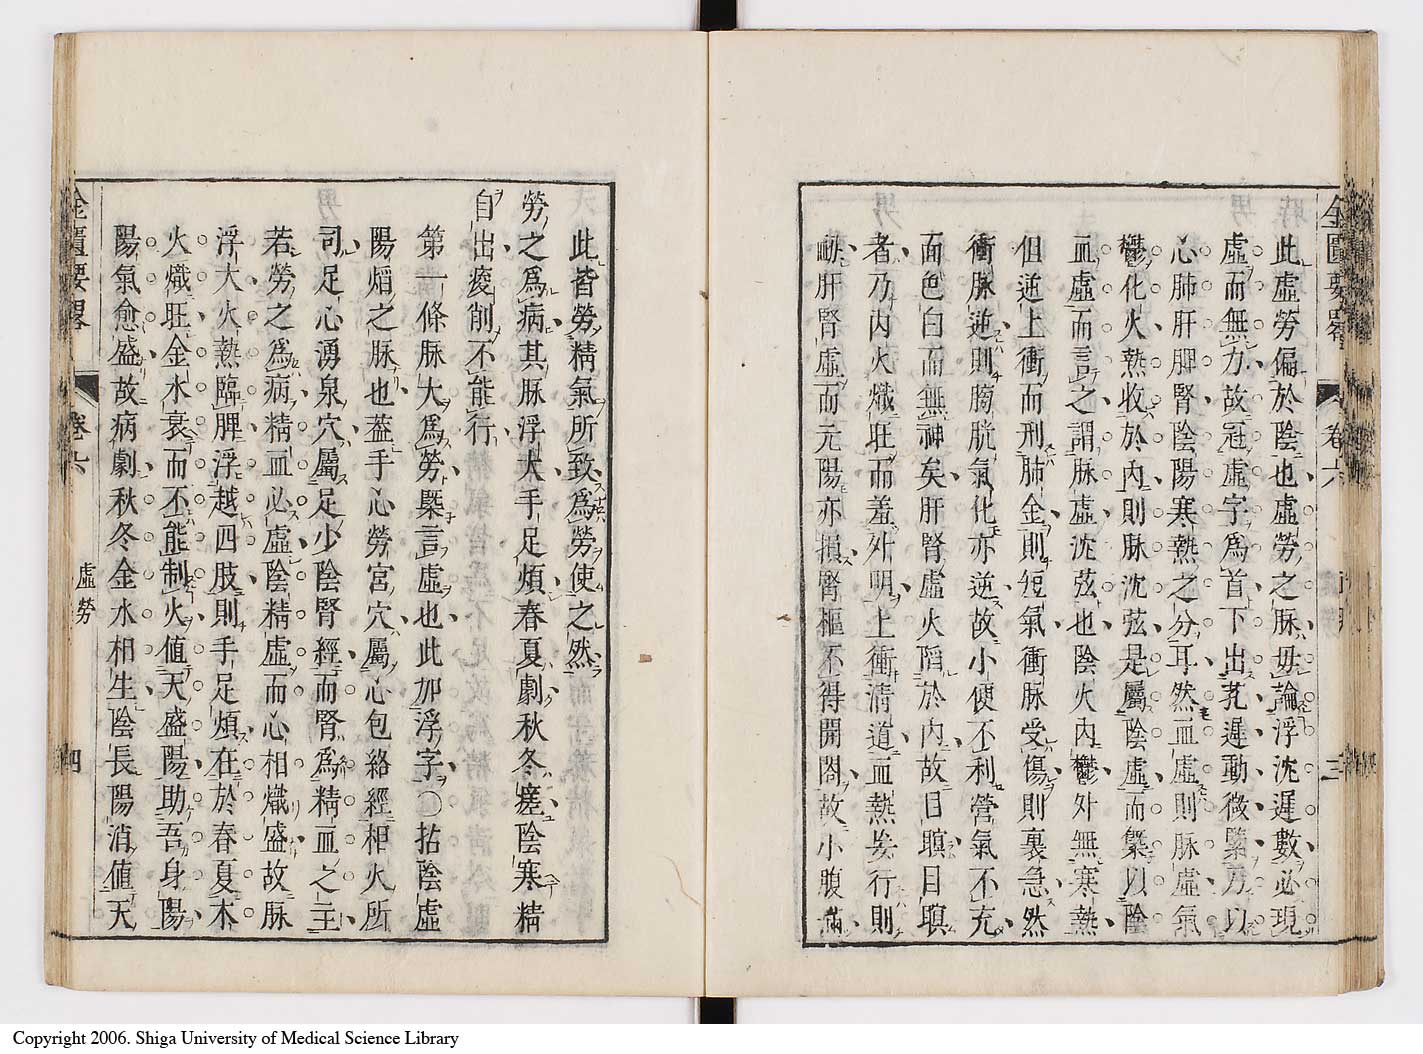 金匱要畧 卷六 三
此虛勞偏於陰也虛勞之脉毋論浮沈遲數必現
虛而無力故冠虛字爲首下出芤遲動微緊乃以
心肺肝脾腎陰陽寒熱之分耳然血虛則脉虛氣
鬱化火熱收於內則脉沈弦是屬陰虛而槩以陰
血虛而言之謂脉虛沈弦也陰火內鬱外無寒熱
但逆上衝而刑肺金則短氣衝脉受傷則裏急然
衝脉逆則膀胱氣化亦逆故小便不利營氣不充
面色白而無神矣肝腎虛火陷於內故目瞑目瞑
者乃內火熾旺而羞外明上衝清道血熱妄行則
衂肝腎虛而元陽亦損腎樞不得開闔故小腹滿
此皆勞精氣所致爲勞使之然
勞之爲病其脉浮大手足煩春夏劇秋冬瘥陰寒精
自出痠削不能行
第一條脉大爲勞槩言虛也此加浮字○拈陰虛
陽熖之脉也葢手心勞宮穴屬心包絡經相火所
司足心湧泉穴屬足少陰腎經而腎爲精血之主
若勞之爲病精血必虛陰精虛而心相熾盛故脉
浮大火熱臨脾浮越四肢則手足煩在於春夏木
火熾旺金水衰而不能制火値天盛陽助吾身陽
陽氣愈盛故病劇秋冬金水相生陰長陽消値天
金匱要畧 卷六 虛勞 四
Copyright 2006. Shiga University of Medical Science Library